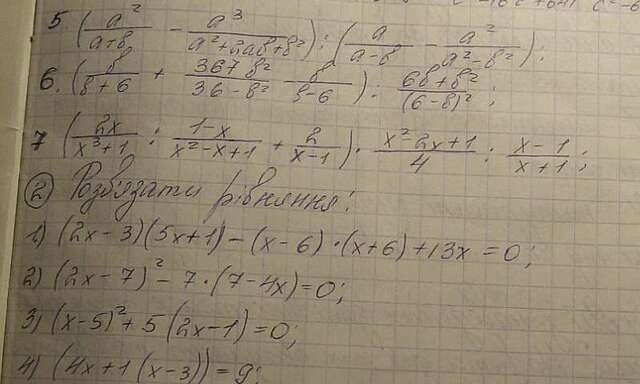 5 (a²/(a+b) − a³/(a²+2ab+b²)) : (a/(a−b) − a²/(a²−b²));
6. (b/(b+6) + (36+b²)/(36−b²) − b/(b−6)) : (6b+b²)/(6−b)²;
7 (2x/(x³+1) : (1−x)/(x²−x+1) + 2/(x−1)) · (x²−2x+1)/4 : (x−1)/(x+1);
② Розв'язати рівняння:
1) (2x−3)(5x+1)−(x−6)·(x+6)+13x=0;
2) (2x−7)²−7·(7−4x)=0;
3) (x−5)²+5(2x−1)=0;
4) (4x+1(x−3))=9;